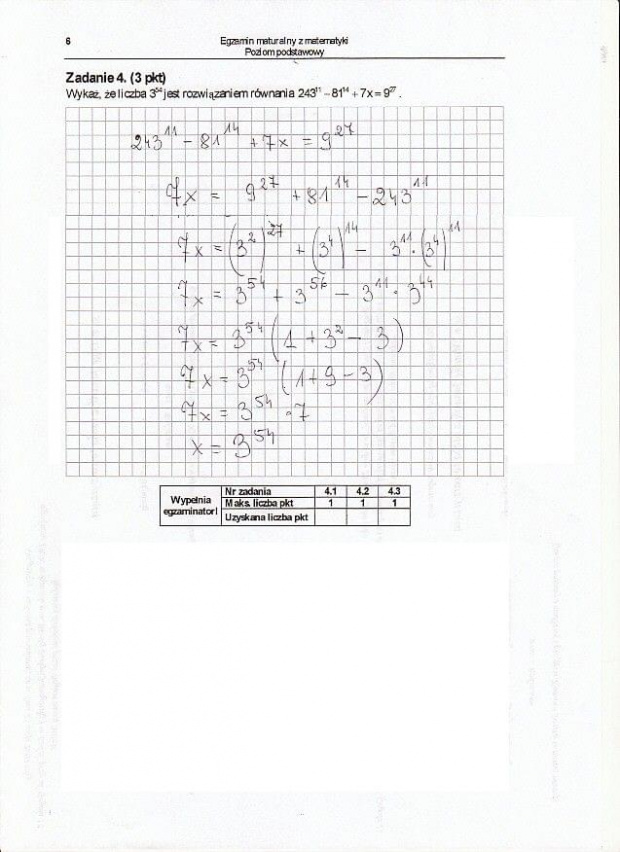 6
Egzamin maturalny z matematyki
Poziom podstawowy
Zadanie 4. (3 pkt)
Wykaż, że liczba 3⁵⁴ jest rozwiązaniem równania 243¹¹ − 81¹⁴ + 7x = 9²⁷ .
243¹¹ − 81¹⁴ + 7x = 9²⁷
7x = 9²⁷ + 81¹⁴ − 243¹¹
7x = (3²)²⁷ + (3⁴)¹⁴ − 3¹¹ · (3⁴)¹¹
7x = 3⁵⁴ + 3⁵⁶ − 3¹¹ · 3⁴⁴
7x = 3⁵⁴ (1 + 3² − 3)
7x = 3⁵⁴ (1 + 9 − 3)
7x = 3⁵⁴ · 7
x = 3⁵⁴
Wypełnia egzaminator!
Nr zadania 4.1 4.2 4.3
Maks. liczba pkt 1 1 1
Uzyskana liczba pkt